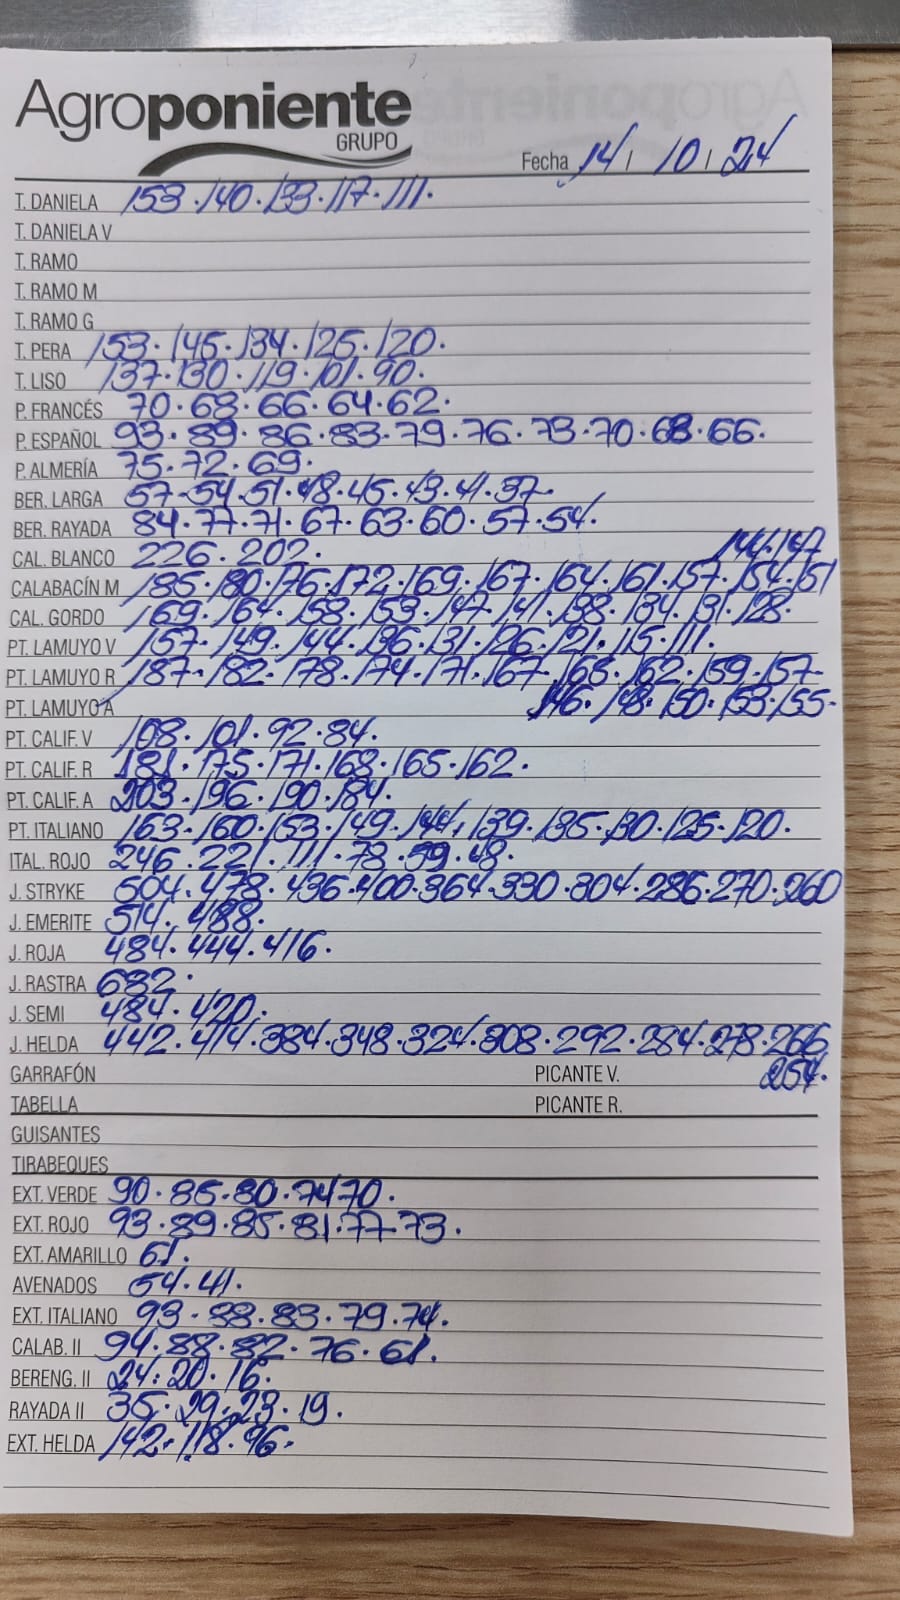 Agroponiente
GRUPO
Fecha 14 / 10 / 24
T. DANELA 153 · 140 · 133 · 117 · 111 ·
T. DANIELA V
T. RAMO
T. RAMO M
T. RAMO G
T. PERA 153 · 145 · 134 · 125 · 120 ·
T. LISO 137 · 130 · 119 · 101 · 90 ·
P. FRANCÉS 70 · 68 · 66 · 64 · 62 ·
P. ESPAÑOL 93 · 89 · 86 · 83 · 79 · 76 · 73 · 70 · 68 · 66 ·
P. ALMERÍA 75 · 72 · 69 ·
BER. LARGA 57 · 54 · 51 · 48 · 45 · 43 · 41 · 37 ·
BER. RAYADA 84 · 77 · 71 · 67 · 63 · 60 · 57 · 54 ·
CAL. BLANCO 226 · 202 ·
144 · 147
CALABACÍN M 185 · 180 · 176 · 172 · 169 · 167 · 164 · 161 · 157 · 154 · 151
CAL. GORDO 169 · 164 · 158 · 153 · 147 · 141 · 138 · 134 · 131 · 128 ·
PT. LAMUYO V 157 · 149 · 144 · 136 · 131 · 126 · 121 · 115 · 111 ·
PT. LAMUYO R 187 · 182 · 178 · 174 · 171 · 167 · 165 · 162 · 159 · 157 ·
PT. LAMUYO A 146 · 148 · 150 · 153 · 155 ·
PT. CALIF. V 108 · 101 · 92 · 84 ·
PT. CALIF. R 181 · 175 · 171 · 168 · 165 · 162 ·
PT. CALIF. A 203 · 196 · 190 · 184 ·
PT. ITALIANO 163 · 160 · 153 · 149 · 144 · 139 · 135 · 130 · 125 · 120 ·
ITAL. ROJO 246 · 221 · 111 · 78 · 59 · 48 ·
J. STRYKE 504 · 478 · 436 · 400 · 364 · 330 · 304 · 286 · 270 · 260
J. EMERITE 514 · 488 ·
J. ROJA 484 · 444 · 416 ·
J. RASTRA 682 ·
J. SEMI 484 · 420 ·
J. HELDA 442 · 414 · 384 · 348 · 324 · 308 · 292 · 284 · 278 · 266
GARRAFÓN PICANTE V. 254 ·
TABELLA PICANTE R.
GUISANTES
TIRABEQUES
EXT. VERDE 90 · 85 · 80 · 74 70 ·
EXT. ROJO 93 · 89 · 85 · 81 · 77 · 73 ·
EXT. AMARILLO 61 ·
AVENADOS 54 · 41 ·
EXT. ITALIANO 93 · 88 · 83 · 79 · 74 ·
CALAB. II 94 · 88 · 82 · 76 · 61 ·
BERENG. II 24 · 20 · 16 ·
RAYADA II 35 · 29 · 23 · 19 ·
EXT. HELDA 142 · 118 · 96 ·